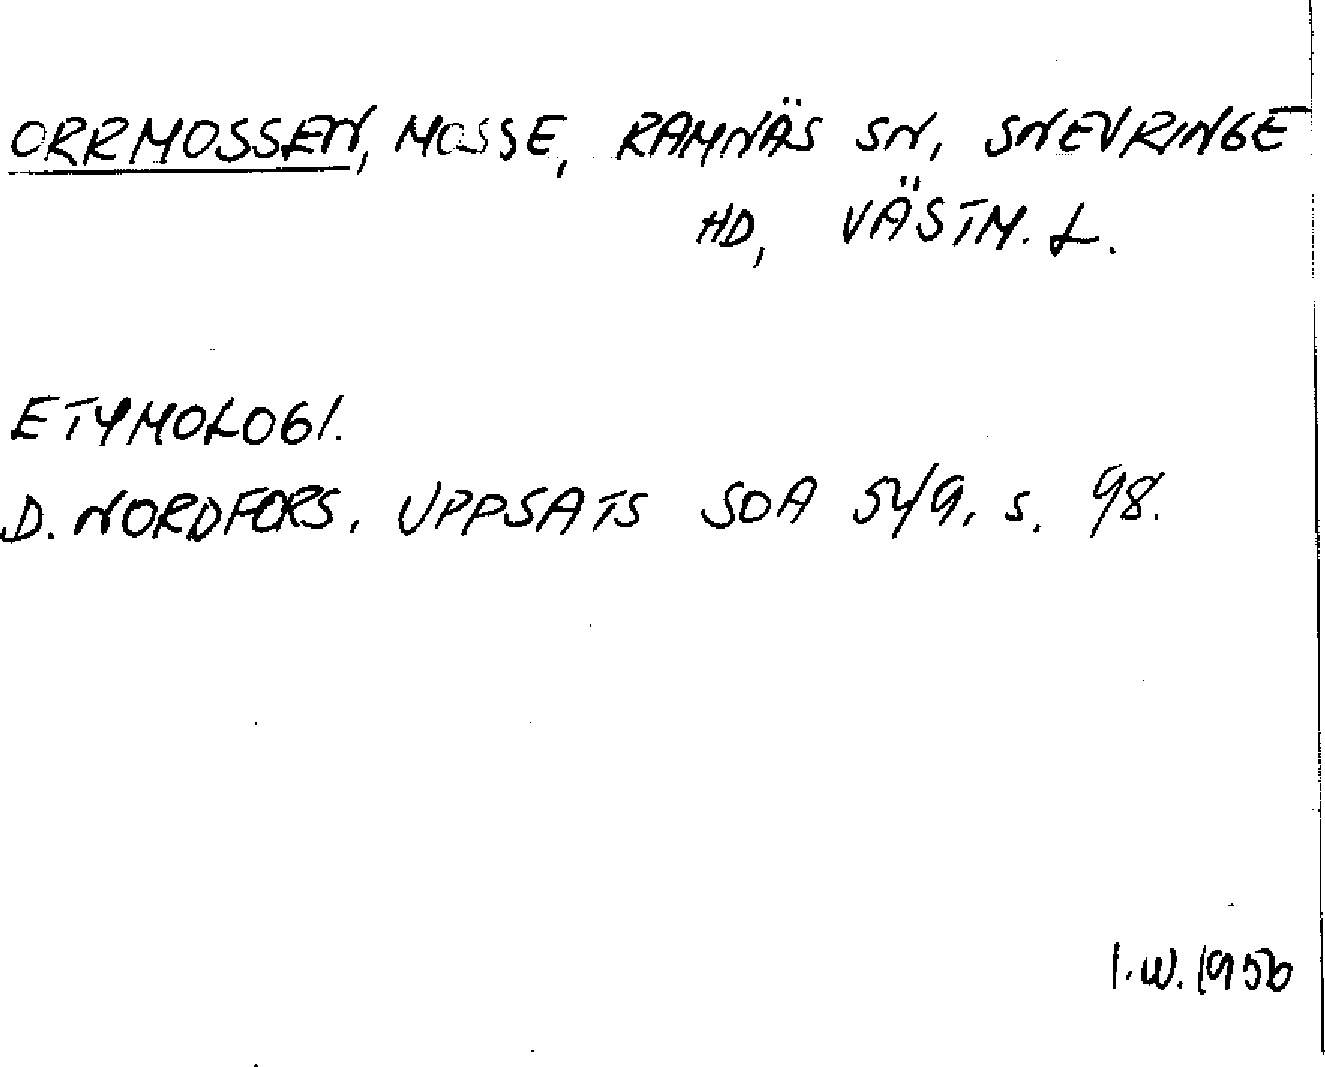 ORRMOSSEN, MOSSE, RAMNÄS SN, SNEVRINGE
HD, VÄSTM. L.
ETYMOLOGI.
D. NORDFORS. UPPSATS SOA 54/9, s. 98.
I.W. 1956